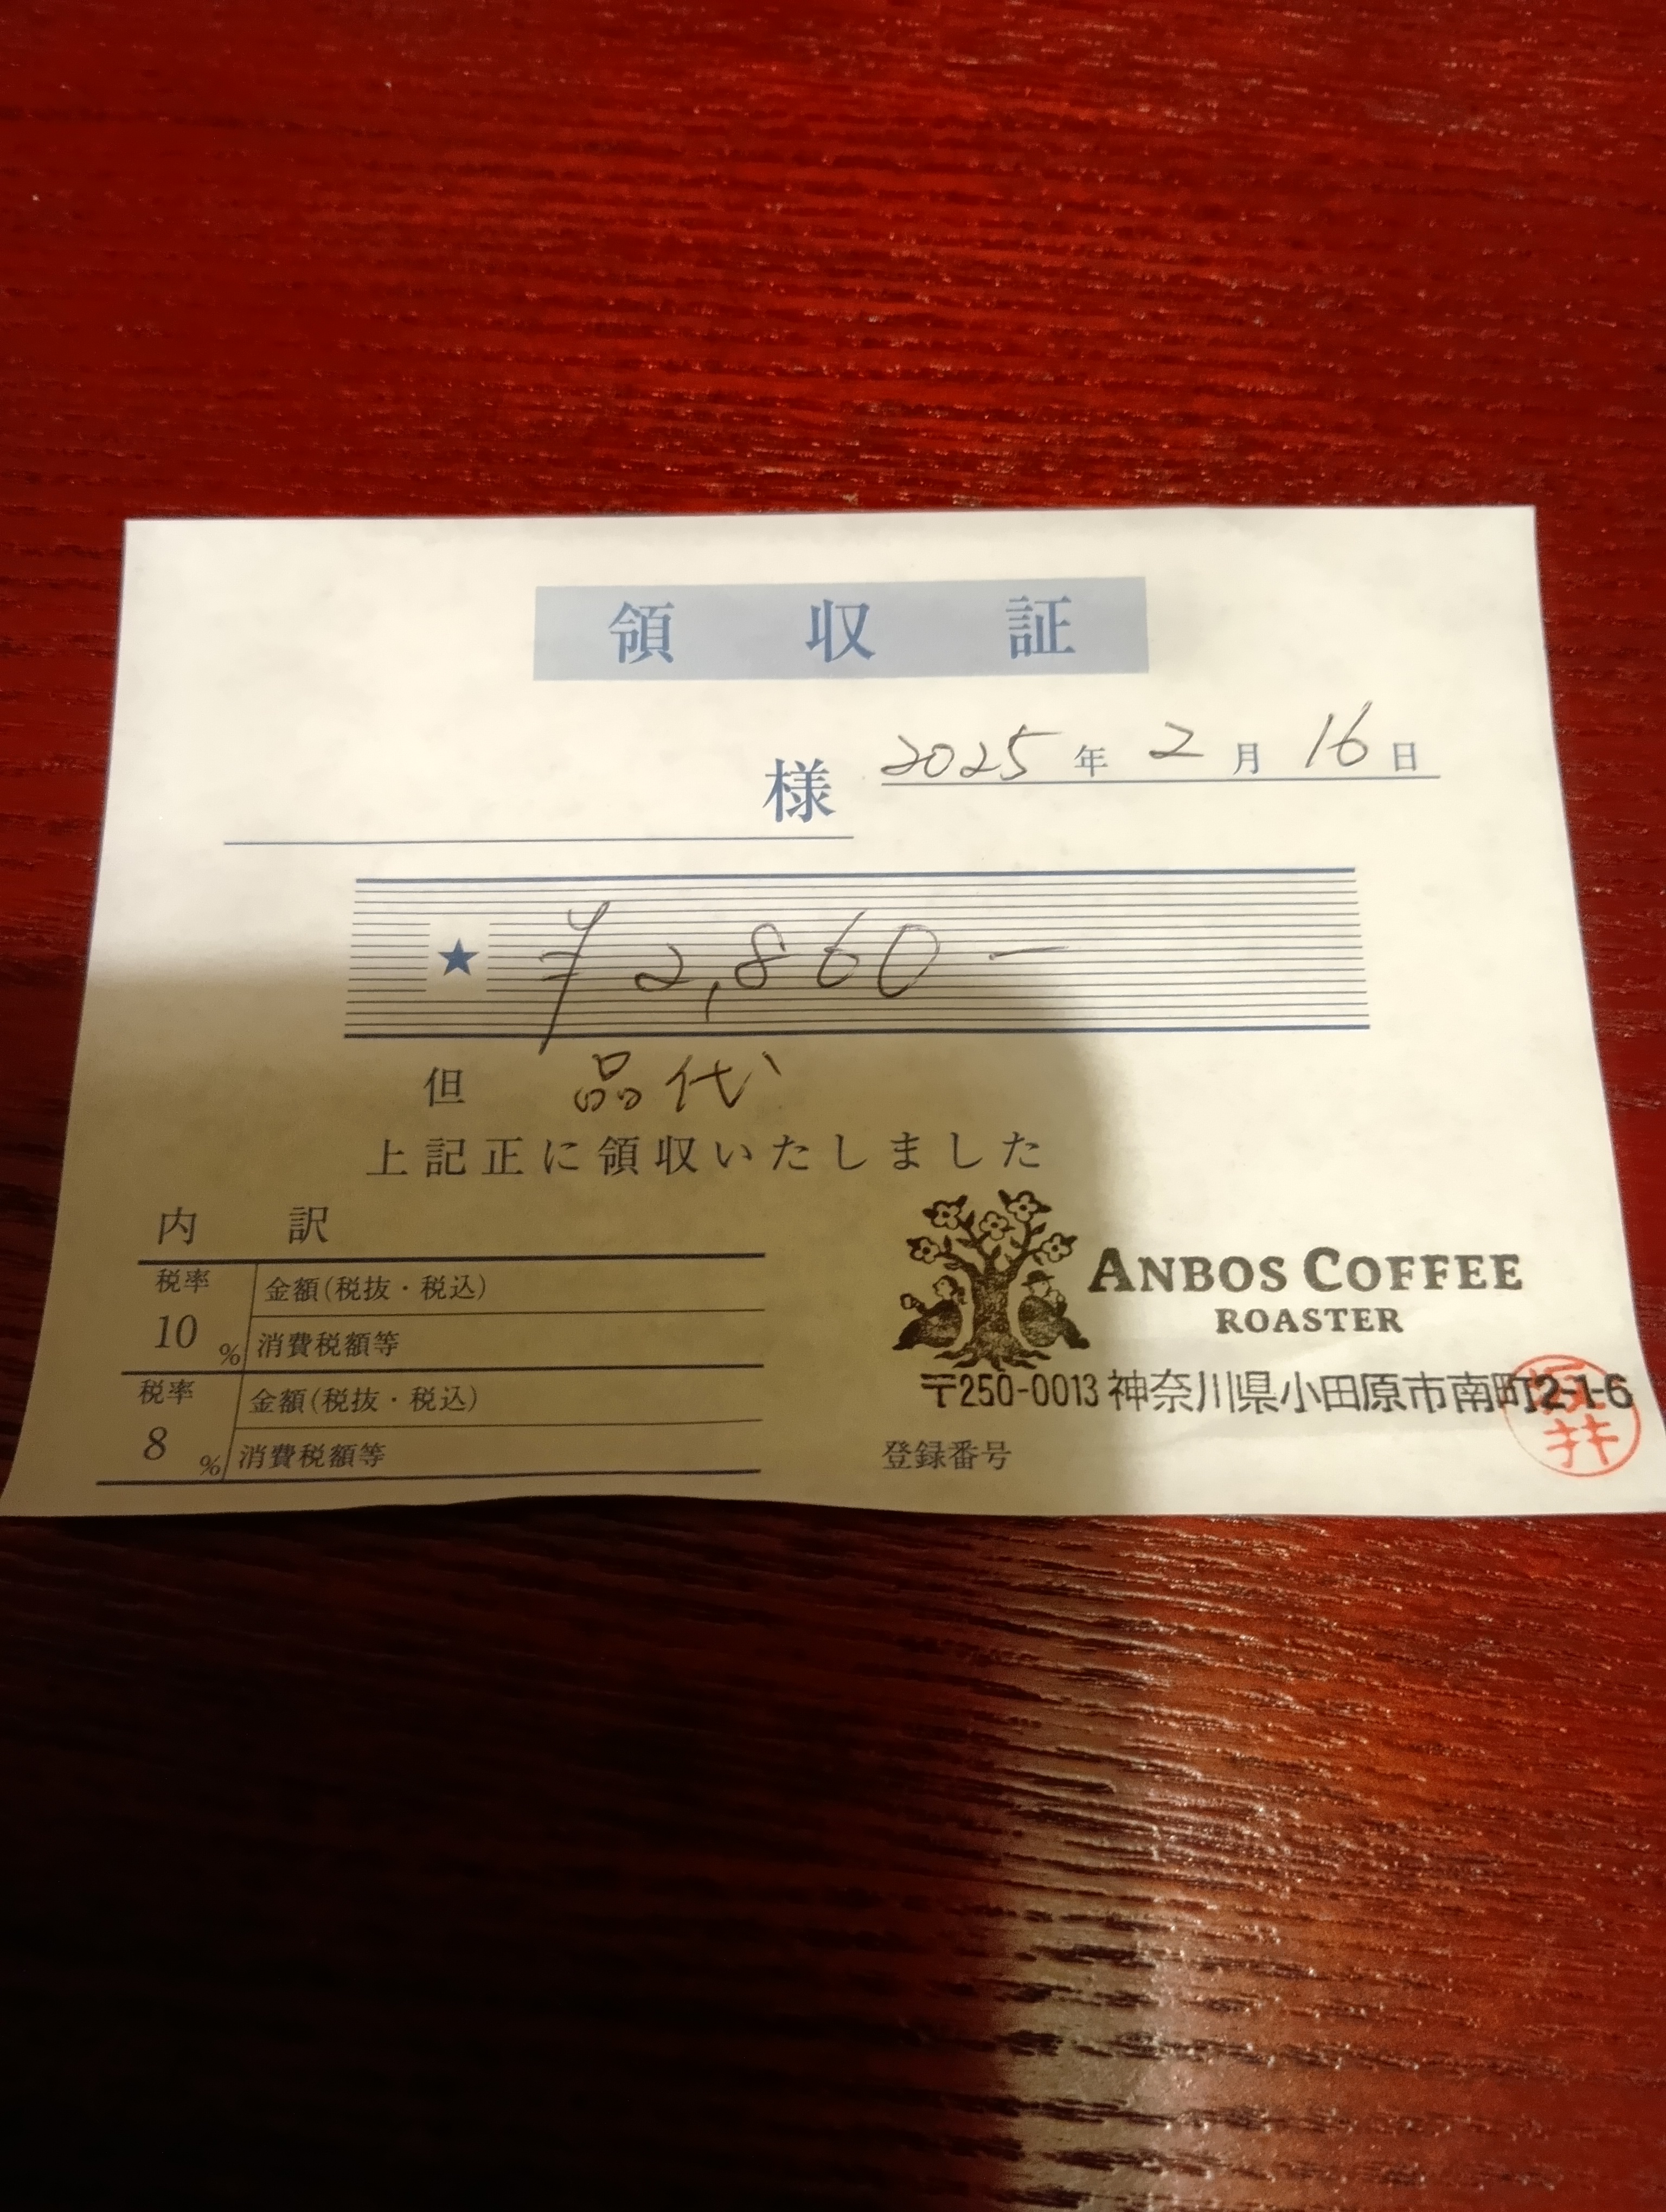 領収証
様 2025年2月16日
★ ¥2,860-
但 品代
上記正に領収いたしました
内訳
税率 10% 金額(税抜・税込)
消費税額等
税率 8% 金額(税抜・税込)
消費税額等
ANBOS COFFEE
ROASTER
〒250-0013 神奈川県小田原市南町2-1-6
登録番号